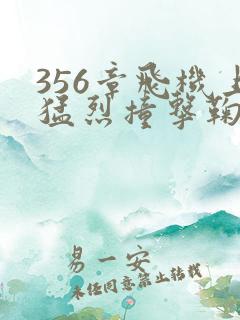 356章飛機上
猛烈撞擊鞠
易一安
未经同意禁止转载